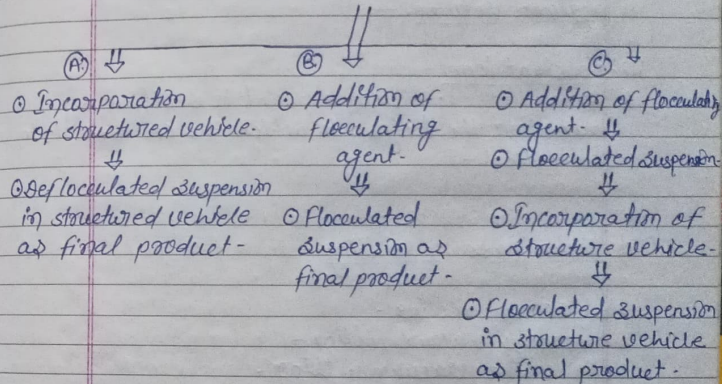 (A)
⊙ Incorporation
of structured vehicle.
⊙ Deflocculated suspension
in structured vehicle
as final product -
(B)
⊙ Addition of
flocculating
agent -
⊙ Flocculated
suspension as
final product -
(C)
⊙ Addition of flocculating
agent.
⊙ Flocculated suspension
⊙ Incorporation of
structure vehicle -
⊙ Flocculated suspension
in structure vehicle
as final product .